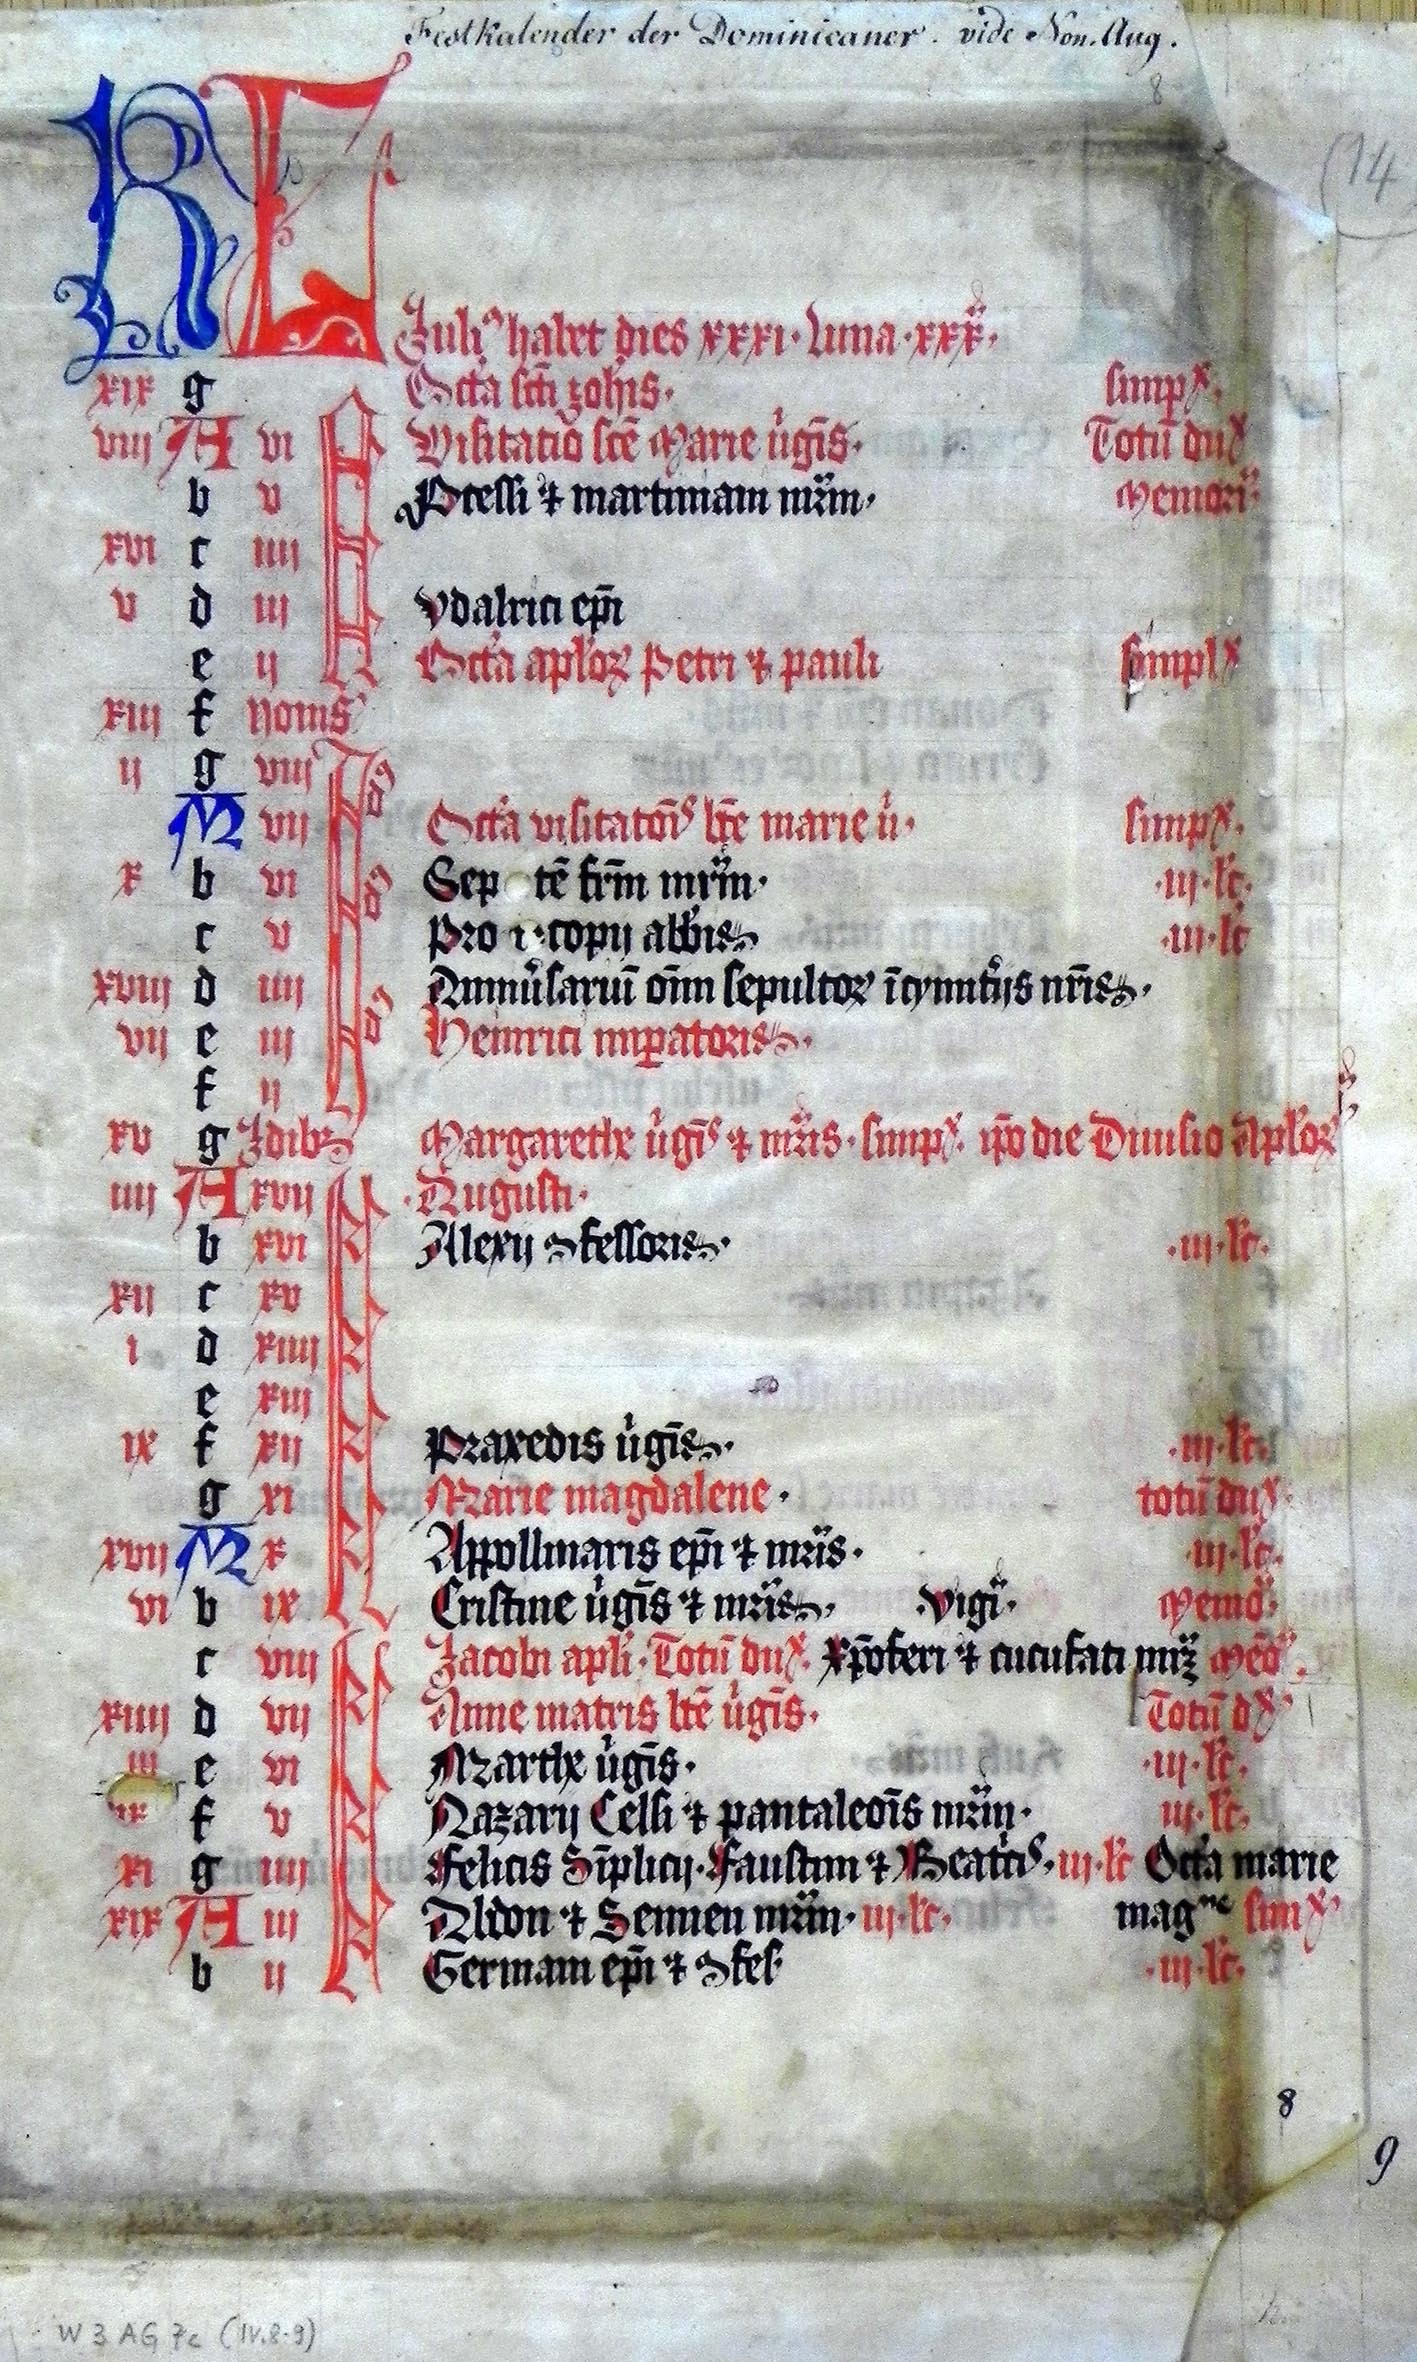 Festkalender der Dominicaner. vide Non. Aug.
8
(14)
KL
Juliꝰ habet dies xxxi. luna. xxx.
xix g Octa scti Johis. simpˣ.
viii A vi Visitatio scē Marie v̓gīs. Totū duˣ
b v Pcessi ⁊ martiniani mr̄m. Memori
xvi c iiii
v d iii Vdalrici ep̄i
e ii Octa aploꝝ Petri ⁊ pauli simplˣ
xiii f Nonis
ii g viii Idꝰ
A vii Octa visitatōis btē marie v̓. simpˣ.
x b vi Idꝰ Sep tē fr̄m mr̄m. .iii.lc̄.
c v Pro copij abbis .iii.lc̄
xviii d iiii Anniv̓sariū oīm sepultoꝝ ī cymit̓ijs nr̄is.
vii e iii Idꝰ Heinrici imꝑatoris.
f ii
xv g Idibꝫ Margarethe v̓gīs ⁊ mr̄is. simpˣ. ip̄o die Diuisio Aploꝝ
iiii A xvii .Augusti.
b xvi Alexij ꝯfessoris. .iii.lc̄.
xii c xv
i d xiiii
e xiii
ix f xii Praxedis v̓gīs. .iii.lc̄.
g xi Marie magdalene. totū duˣ.
xvii A x Appollinaris ep̄i ⁊ mr̄is. .iii.lc̄.
vi b ix Cristine v̓gīs ⁊ mr̄is. .vigi. Memo.
c viii Jacobi apli. Totū duˣ. Xp̄oferi ⁊ cucufati mr̄ꝫ Meō.
xiiii d vii Anne matris btē v̓gīs. Totū dˣ
iii e vi Marthe v̓gīs. .iii.lc̄.
f v Nazarij Celsi ⁊ pantaleoīs mr̄m. iii.lc̄.
xi g iiii Felicis Sīplicij. Faustini ⁊ Beatc̓is. iii.lc̄ Octa marie
xix A iii Abdon ⁊ Sennen mr̄m. iii.lc̄. magⁿᵉ simˣ
b ii Germani ep̄i ⁊ ꝯfes .iii.lc̄.
8
9
W 3 AG 7c (IV.8-9)